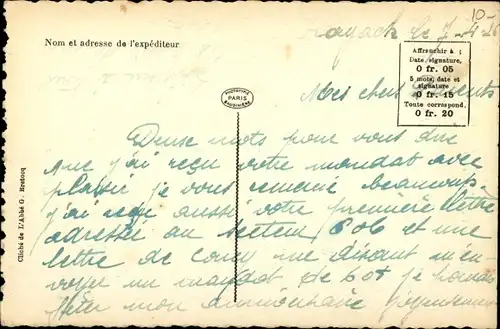 10-
Rayack le 7-4-26
Nom et adresse de l'expéditeur
Affranchir à :
Date, signature,
0 fr. 05
5 mots, date et
signature
0 fr. 15
Toute correspond.
0 fr. 20
PARIS
Mes chers Parents
Deux mots pour vous dire
que j'ai reçu votre mandat avec
plaisir je vous remercie beaucoup
j'ai reçu aussi votre première lettre
adressée au secteur 606 et une
lettre de me disant m'en
voyer un mandat de 60f je
fêter mon anniversaire
Cliché de L'Abbé G. Bretocq